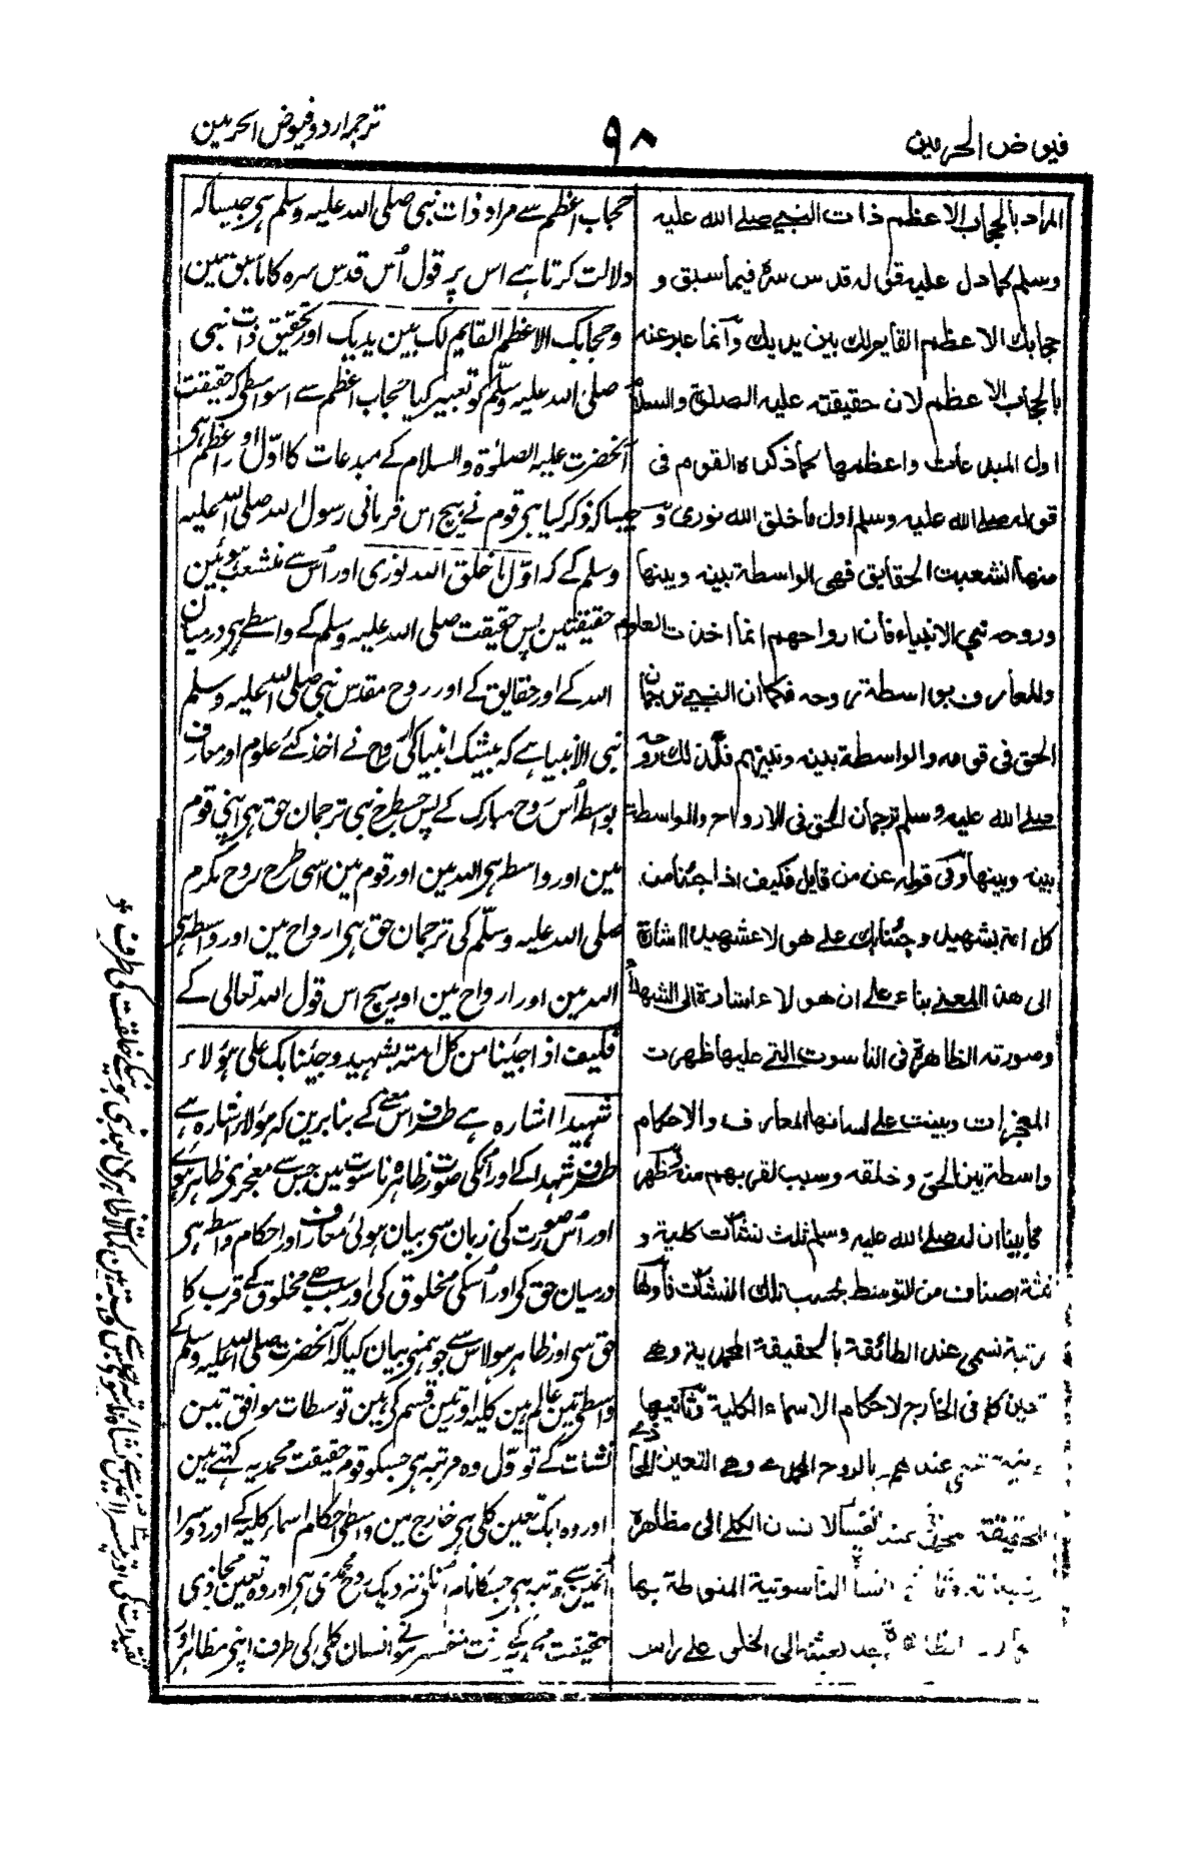 فیوض الحرمین
۹۸
ترجمہ اردو فیوض الحرمین
المراد بالحجاب الاعظم ذات النبی صلے الله علیه
وسلم کما دل علیه قوله قدس سرہ فیما سبق و
حجابك الاعظم القایم لك بین یدیك وانما عبر عنه
بالحجاب الاعظم لان حقیقته علیه الصلوة والسلام
اول المبدعات واعظمها کما ذکرہ القوم فی
قوله صلے الله علیه وسلم اول ما خلق الله نوری و
منها انشعبت الحقایق فهی الواسطة بینه وبینها
وروحه نبی الانبیاء فان ارواحهم انما اخذت العلوم
والمعارف بواسطة روحه فکما ان النبی ترجمان
الحق فی قومه والواسطة بینه وبینهم فکذلك روحه
صلے الله علیه وسلم ترجمان الحق فی الارواح والواسطة
بینه وبینها وفی قوله عن من قایل فکیف اذا جئنا من
کل امة بشهید وجئنابك علے هولاء شهیدا اشارة
الی هذا المعنے بناء علے ان هولاء اشارة الی الشهداء
وصورته الظاهرة فی الناسوت التے علیها ظهرت
المعجزات وبینت علے لسانها المعارف والاحکام
واسطة بین الحق وخلقه وسبب لقربهم منه فظهر
مما بینا ان له صلے الله علیه وسلم ثلث نشأت کلیة و
ثلثة اصناف من التوسط بحسب تلك النشأت فاولها
رتبة تسمی عند الطائفة بالحقیقة المحمدیة وهے
تعین کلے فی الخارج لاحکام الاسماء الکلیة وثانیها
عندهم بالروح المحمدے وهے التعین
الحقیقة الانسان الکلے الی مظاهرہ
الناسوتیة المنوطة بها
بعد بعثته الی الخلق علے راس
حجاب اعظم سے مراد ذات نبی صلی اللہ علیہ وسلم ہی جیسا کہ
دلالت کرتا ہے اس پر قول اُس قدس سرہ کا ماسبق مین
وحجابک الاعظم القایم لک بین یدیک اور تحقیق ذات نبی
صلی اللہ علیہ وسلّم کو تعبیر کیا حجاب اعظم سے اسواسطی کہ حقیقت
آنحضرت علیہ الصلوٰۃ والسلام کے مبدعات کا اوّل اور اعظم ہی
جیسا کہ ذکر کیا ہی قوم نے بیچ اس فرمانی رسول اللہ صلی اللہ علیہ
وسلم کے کہ اوّل ما خلق اللہ نوری اور اُس سے منشعب ہوئین
حقیقتین پس حقیقت صلی اللہ علیہ وسلم کے واسطے ہی درمیان
اللہ کے اور حقایق کے اور روح مقدس نبی صلی اللہ علیہ وسلم
نبی الانبیا ہے کہ بیشک انبیا کی روح نے اخذ کئے علوم اور معارف
بوسط اُس روح مبارک کے پس جسطرح نبی ترجمان حق ہی اپنی قوم
مین اور واسطہ ہی اللہ مین اور قوم مین اسی طرح روح مکرم
صلی اللہ علیہ وسلّم کی ترجمان حق ہی ارواح مین اور واسطہ ہی
اللہ مین اور ارواح مین اور بیچ اس قول اللہ تعالی کے
فکیف اذا جئنا من کل امتہ بشہید وجئنا بک علی ہؤلاء
شہیدا اشارہ ہے طرف اس معنے کے بنابرین کہ ہؤلاء اشارہ ہے
طرف شہدا کے اور انکی صورت ظاہرہ ناسوت مین جس سے معجزی ظاہر ہوے
اور اُس صورت کی زبان سی بیان ہوئی معارف اور احکام واسطہ ہی
درمیان حق کی اور اُسکی مخلوق کی اور سبب ہے مخلوق کے قرب کا
حق سی اور ظاہر ہوا اس سے جو ہمنی بیان کیا کہ آنحضرت صلی اللہ علیہ وسلم کے
واسطی تین عالم ہین کلیہ اور تین قسم کی ہین توسطات موافق تین
نشات کے تو اوّل وہ مرتبہ ہی جسکو قوم حقیقت محمدیہ کہتے ہین
اور وہ ایک تعین کلی ہی خارج مین واسطی احکام اسماء کلیہ کے اور دوسرا
اُنمین سے مرتبہ ہی جسکا نام اُنکی نزدیک روح محمدی ہی اور وہ تعین محاذی
حقیقت انسان کلی کی طرف اپنی مظاہر